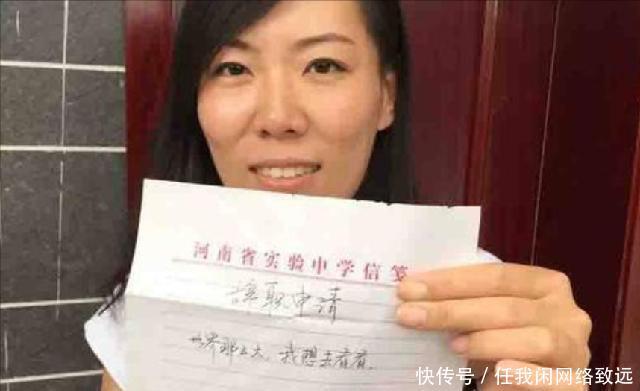 河南省实验中学信笺
辞职申请
世界那么大，我想去看看。
快传号／任我闲网络致远